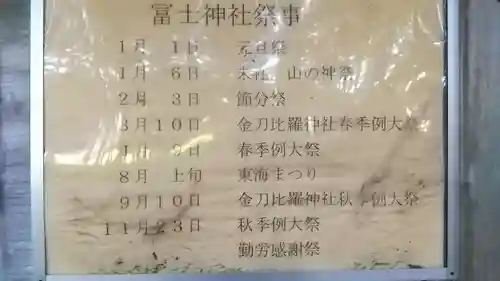 冨士神社祭事
1月 1日 元旦祭
1月 6日 末社 山の神祭
2月 3日 節分祭
3月10日 金刀比羅神社春季例大祭
月 日 春季例大祭
8月 上旬 東海まつり
9月10日 金刀比羅神社秋季例大祭
11月23日 秋季例大祭
勤労感謝祭